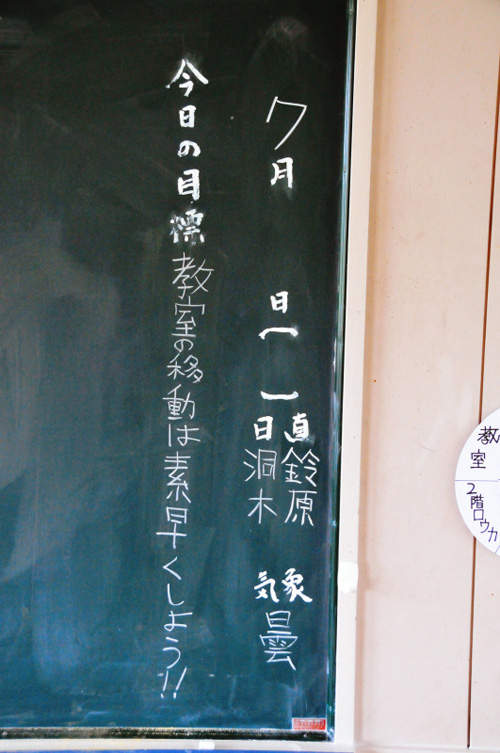 7月 日( )
日直 鈴原 洞木
気象 曇
今日の目標 教室の移動は素早くしよう!!
教室
2階ロウカ